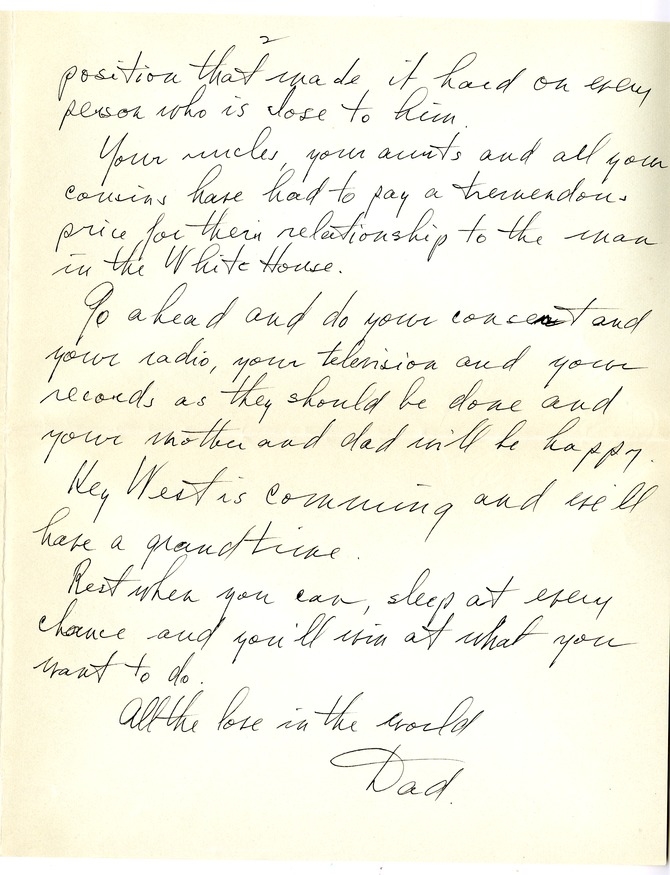 2
position that made it hard on every
person who is close to him.
Your uncles, your aunts and all your
cousins have had to pay a tremendous
price for their relationship to the man
in the White House.
Go ahead and do your concert and
your radio, your television and your
records as they should be done and
your mother and dad will be happy.
Key West is comming and we'll
have a grand time.
Rest when you can, sleep at every
chance and you'll win at what you
want to do.
All the love in the world
Dad.